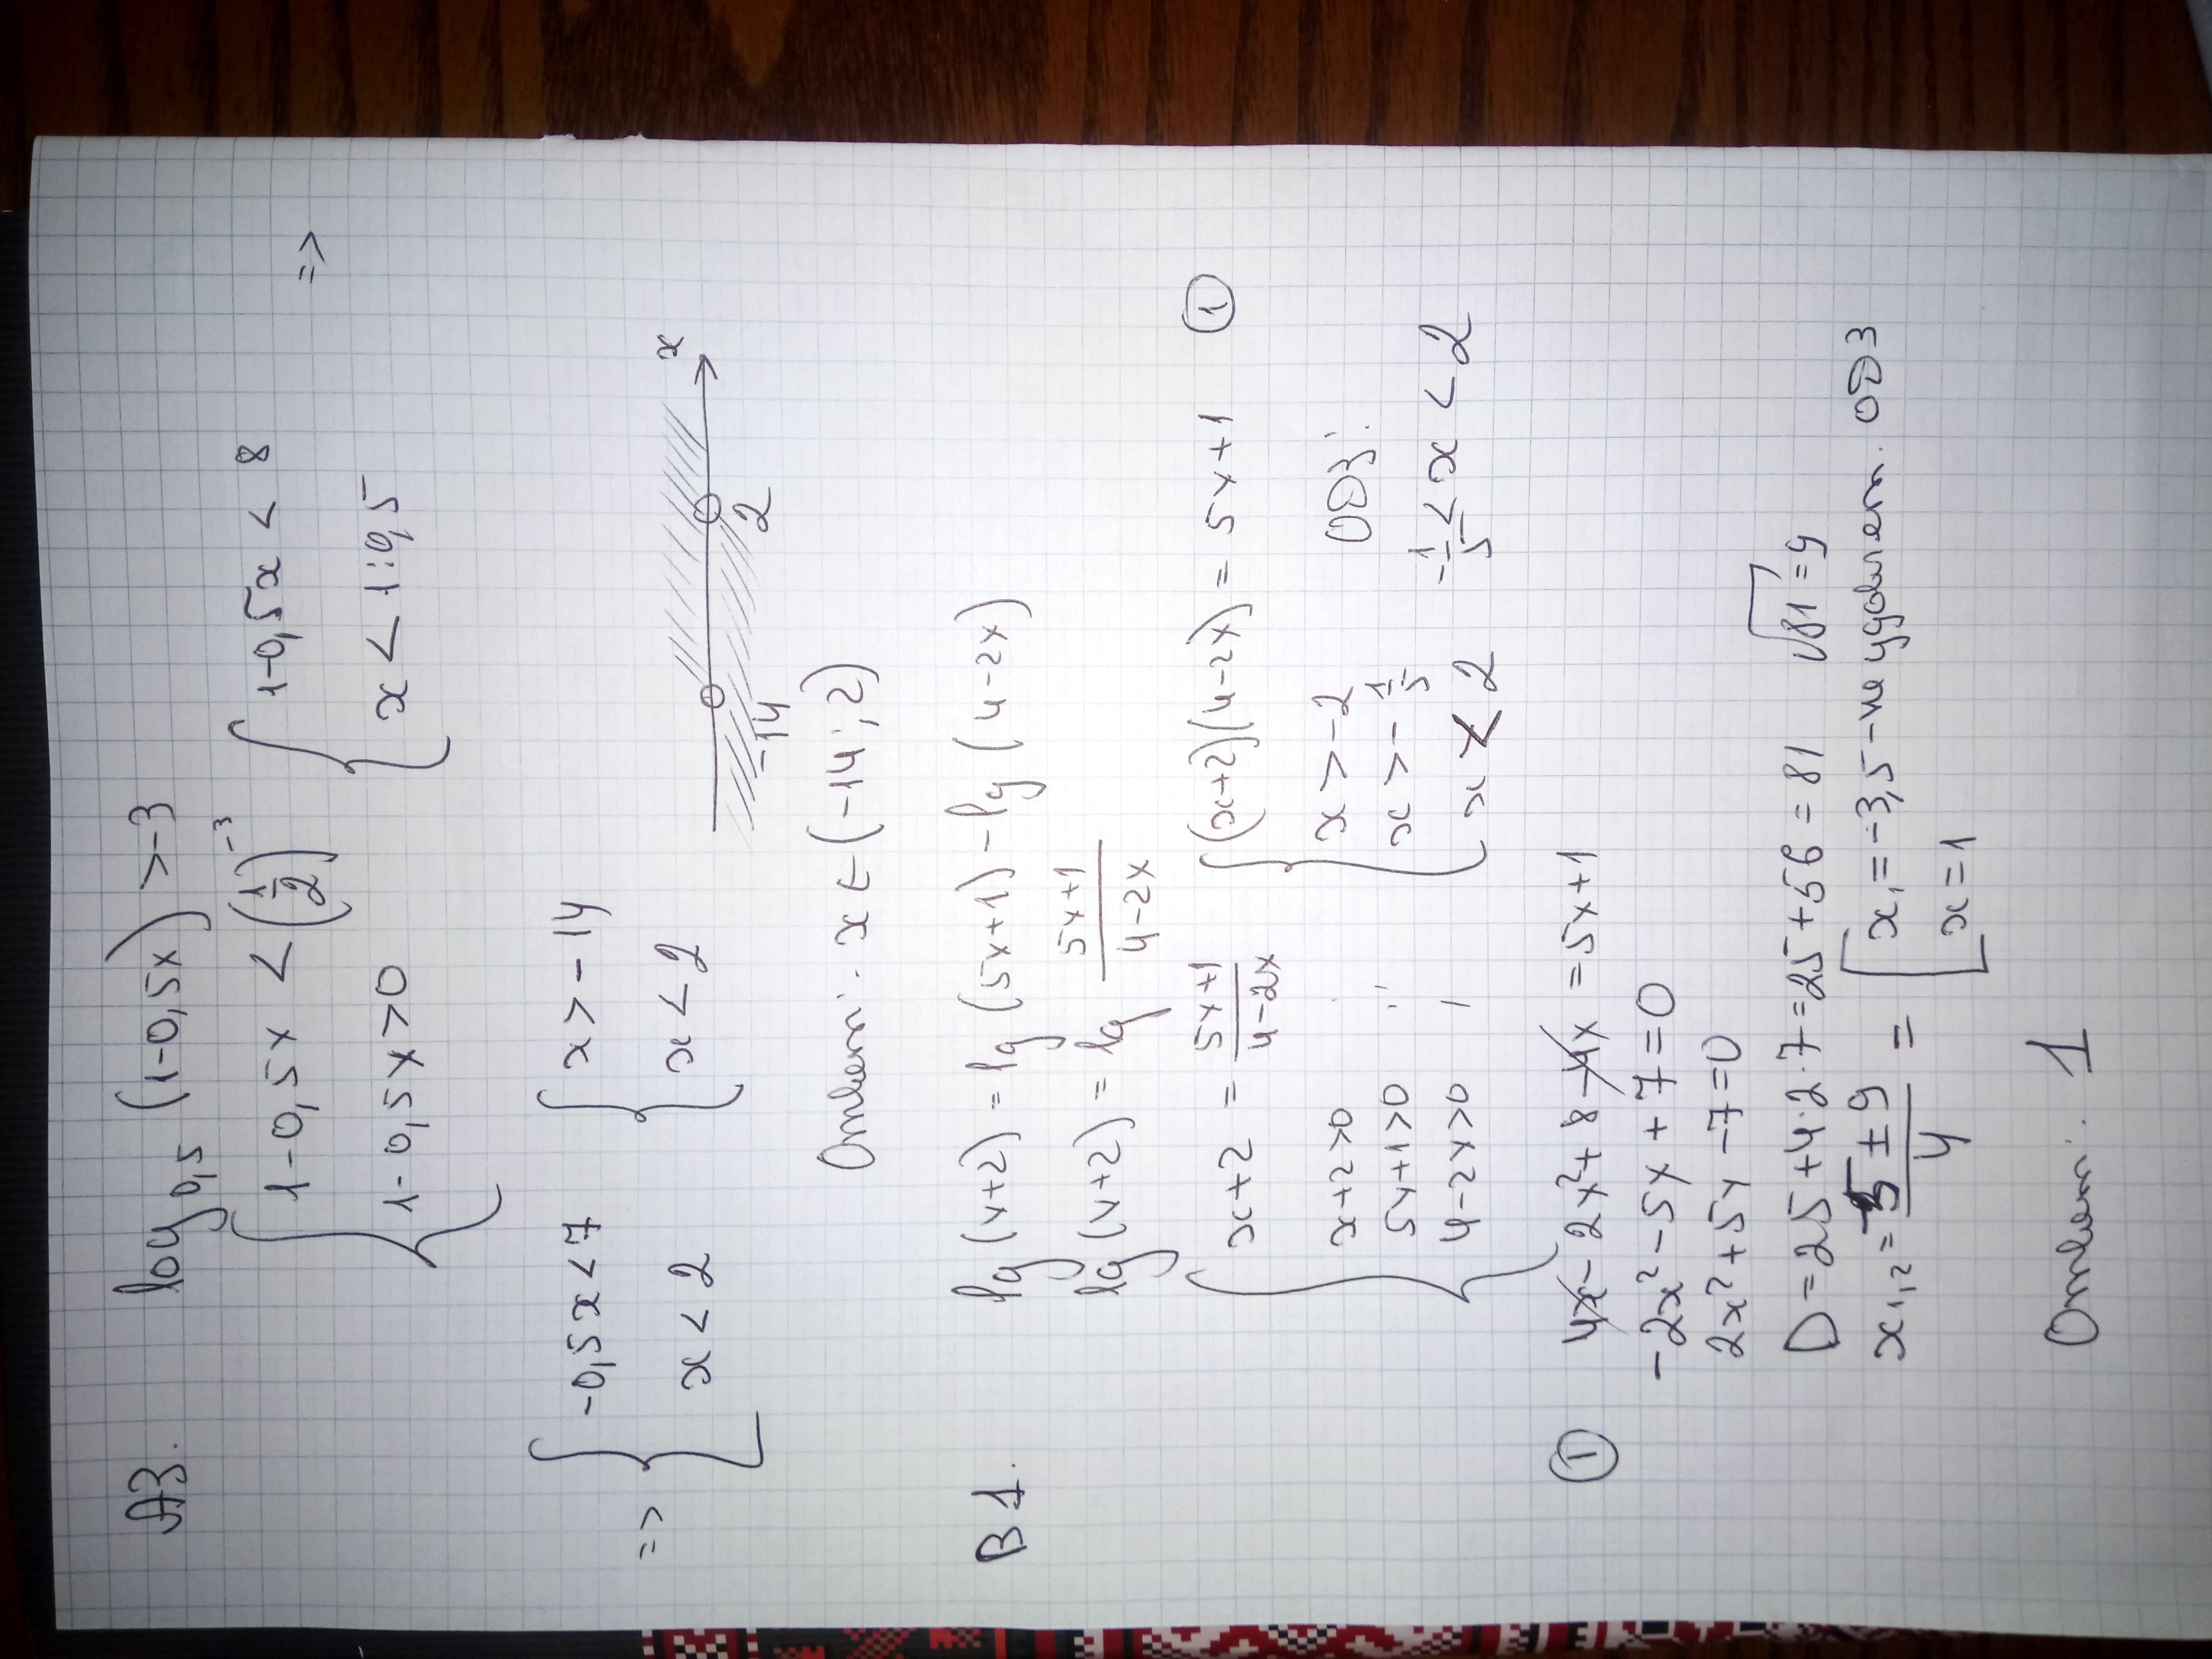 А3. log₀,₅ (1-0,5x) > -3
{ 1-0,5x < (1/2)⁻³ { 1-0,5x < 8 =>
1-0,5x>0 x < 1:0,5
=> { -0,5x<7 { x>-14
x<2 x<2
-14 2 x
Ответ: x∈(-14;2)
В1. lg(x+2) = lg(5x+1) - lg(4-2x)
lg(x+2) = lg (5x+1)/(4-2x)
{ x+2 = (5x+1)/(4-2x) { (x+2)(4-2x) = 5x+1 ①
x+2>0 ; x>-2 ОДЗ:
5x+1>0 ; x>-1/5 -1/5<x<2
4-2x>0 ; x<2
① 4x-2x²+8-4x = 5x+1
-2x²-5x+7=0
2x²+5x-7=0
D=25+4·2·7=25+56=81 √81=9
x₁,₂ = (-5±9)/4 = [ x₁=-3,5-не удовлет. ОДЗ
x=1
Ответ: 1